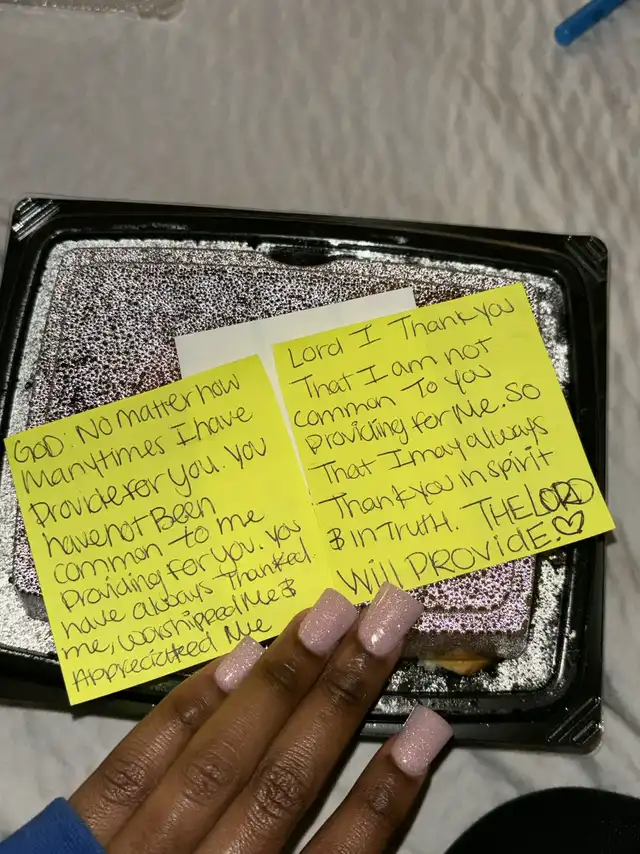 GOD: No matter how
many times I have
Provide for you. You
have not Been
common to me
Providing for you. You
have always Thanked
me, worshipped Me &
Appreciated Me
Lord I Thank you
That I am not
common To you
providing for Me. So
That I may always
Thank you in spirit
& in Truth. THE LORD
Will PROVIDE.♡